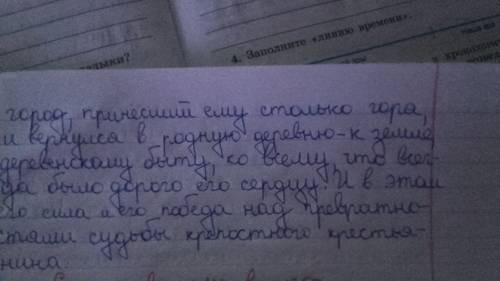 4. Заполните «линию времени».
город, принёсший ему столько горя,
и вернулся в родную деревню - к земле,
деревенскому быту, ко всему, что всег-
да было дорого его сердцу. И в этом
его сила и его победа над превратно-
стями судьбы крепостного крестья-
нина.